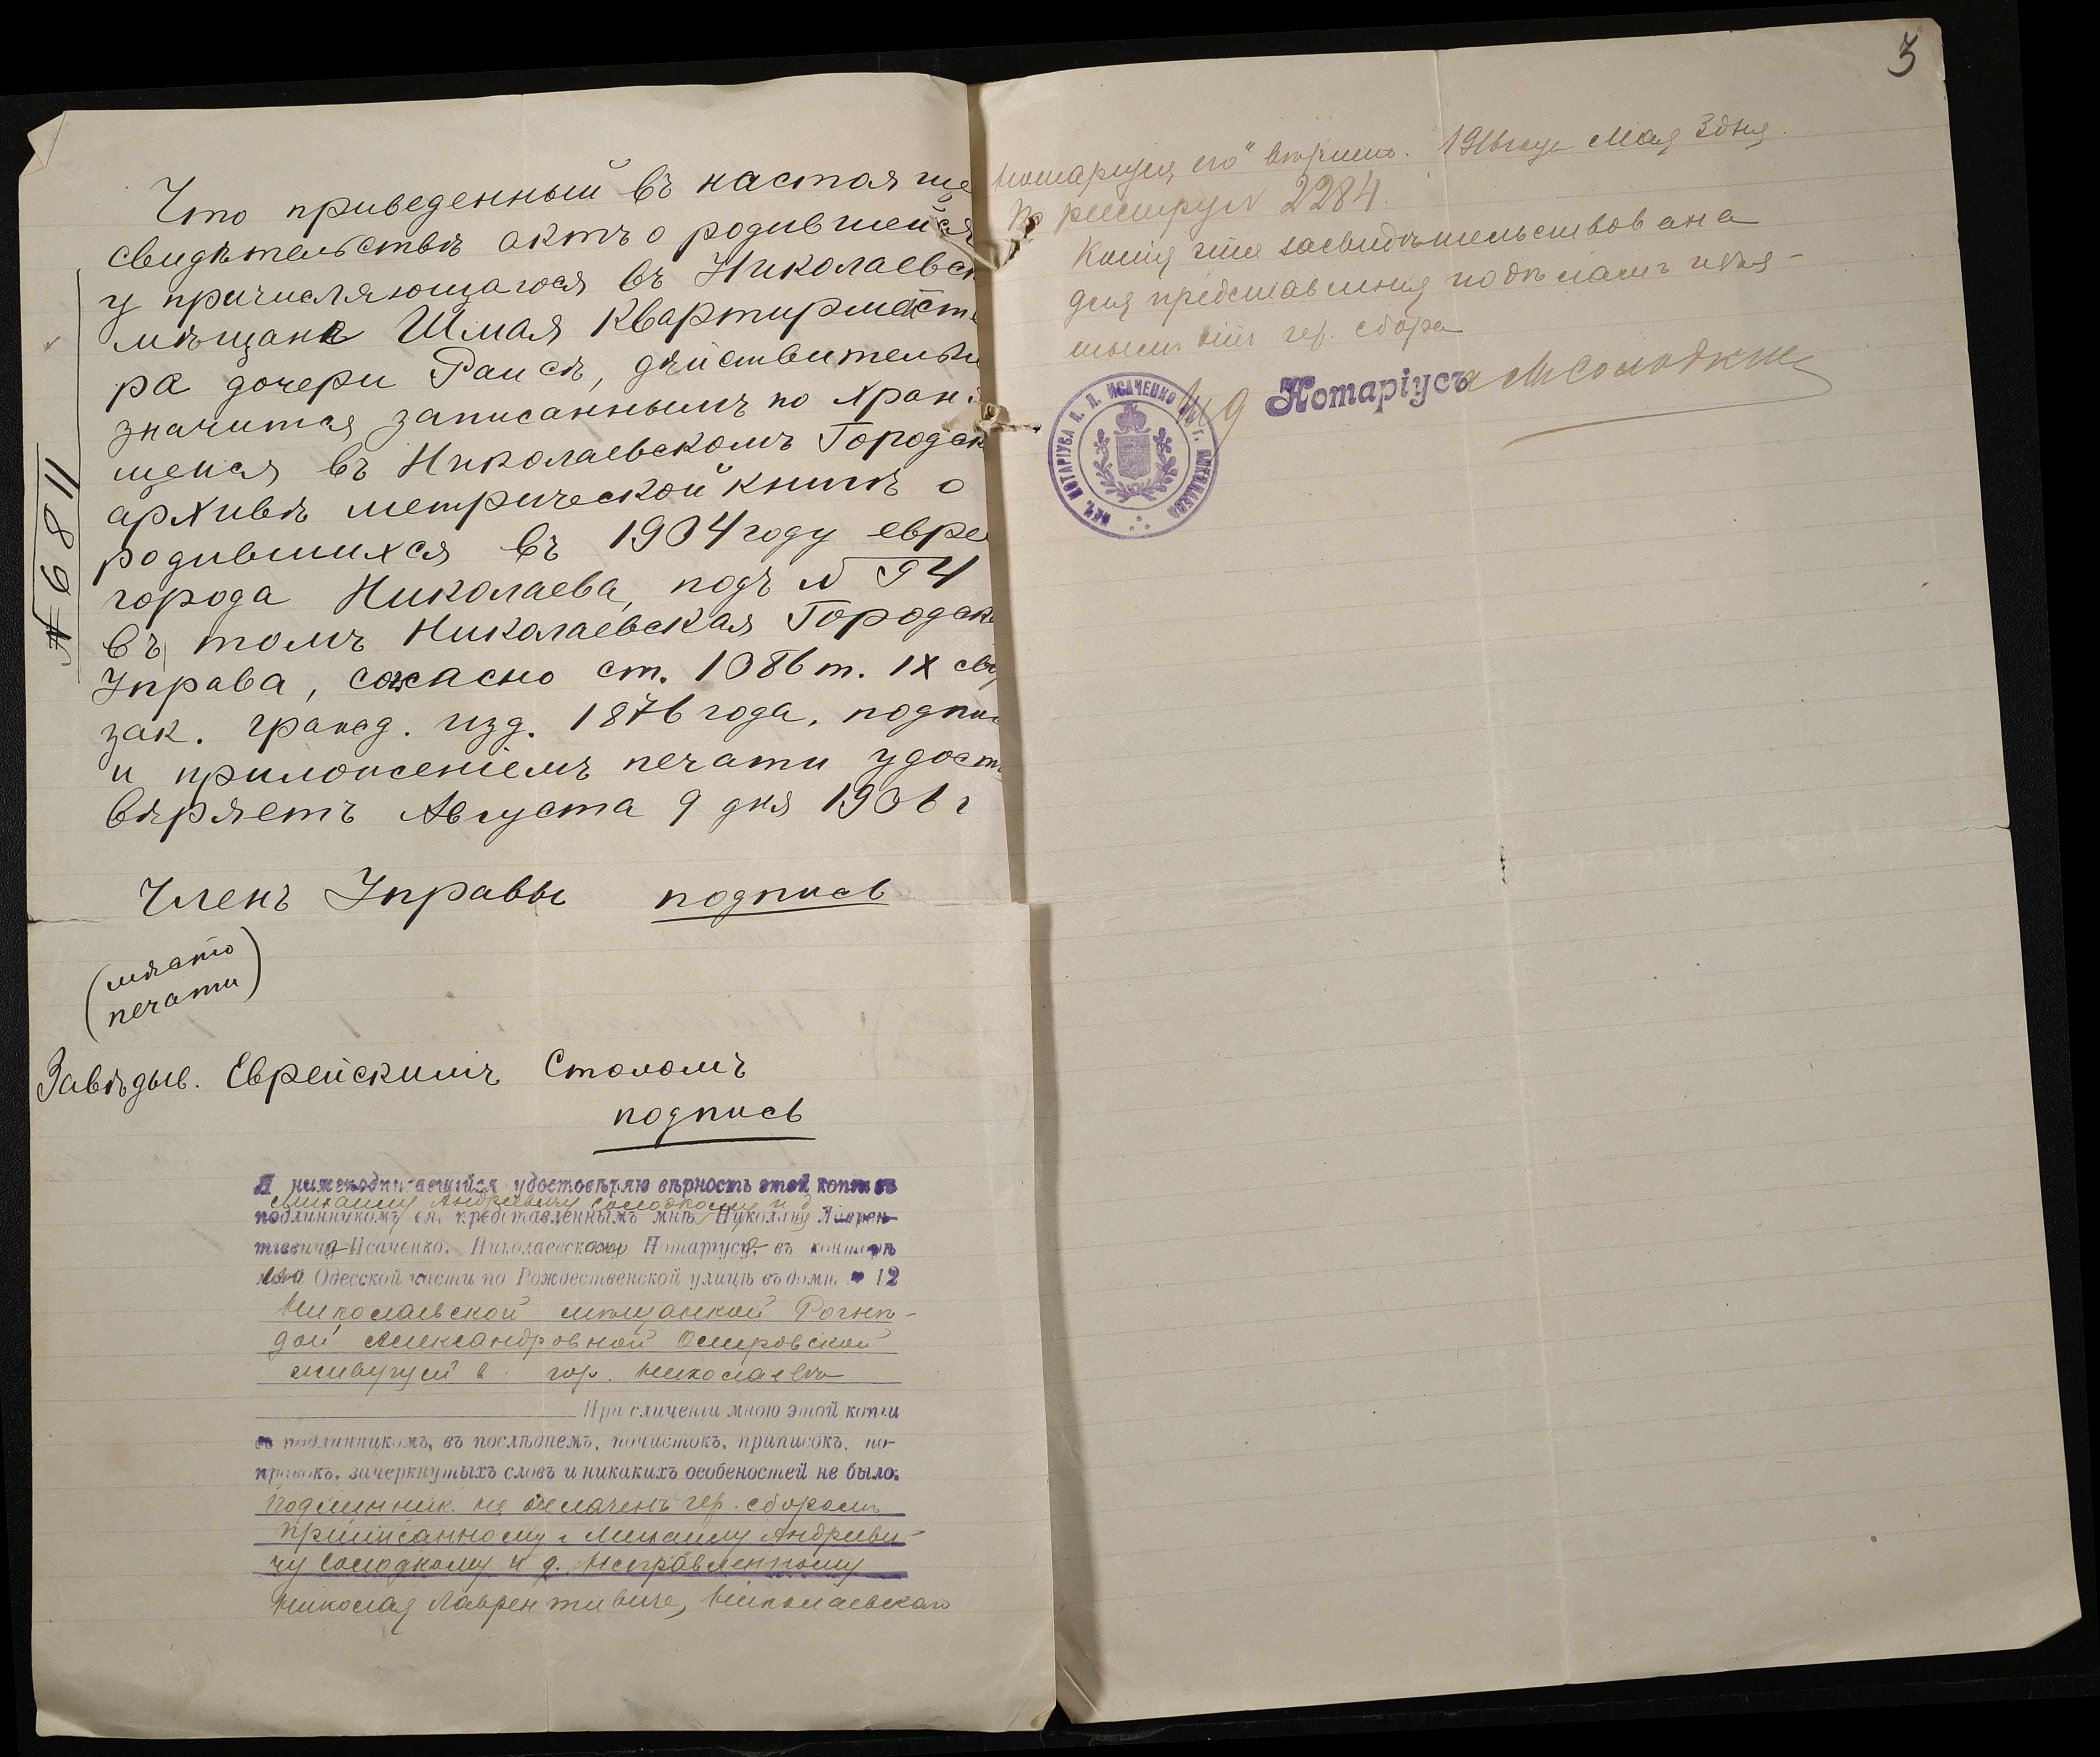 Что приведенный въ настояще
свидѣтельствѣ актъ о родившейся
у причисляющагося въ Николаевск
мѣщане Шмая Квартирмейсте
ра дочери Раисѣ, дѣйствительн
значится записаннымъ по храня
щейся въ Николаевскомъ Городск
архивѣ метрической книгѣ о
родившихся въ 1904 году евре
города Николаева, подъ №
въ томъ Николаевская Городск
Управа, согласно ст. 1086 т. IX
зак. гражд. изд. 1876 года, подпис
и приложеніемъ печати удосто
вѣряетъ Августа 9 дня 1906 г
№ 6811
Членъ Управы подпись
(мѣсто
печати)
Завѣдыв. Еврейскимъ Столомъ
подпись
Я нижеподписавшійся удостовѣряю вѣрность этой копіи съ
Михаилу Андреевичу Солодкому и д
подлинникомъ ея представленнымъ мнѣ Николаю Лаврен-
тьевичу Исаченко, Николаевскому Нотаріусу, въ конторѣ
его Одесской части по Рождественской улицѣ въ домѣ № 12
Николаевской мѣщанкой Рогнѣ-
дой Александровной Островской
живущей в гор. Николаевѣ
При сличеніи мною этой копіи
съ подлинникомъ, въ послѣднемъ, почистокъ, приписокъ, по-
правокъ, зачеркнутыхъ словъ и никакихъ особеностей не было.
Подлинник. не оплаченъ гер. сборомъ
приписанному „Михаилу Андрееви-
чу Солодкому и д. Исправленному
Николая Лаврентьевича, Николаевскаго
3
нотаріуса его" вѣрить. 1911 года Мая 3 дня.
По реестру № 2284.
Копія эта засвидѣтельствована
для представленія
гер. сбора
И д Нотаріуса М Солодкій
ПЕЧ. НОТАРІУСА Н. Л. ИСАЧЕНКО ВЪ Г. НИКОЛАЕВѢ